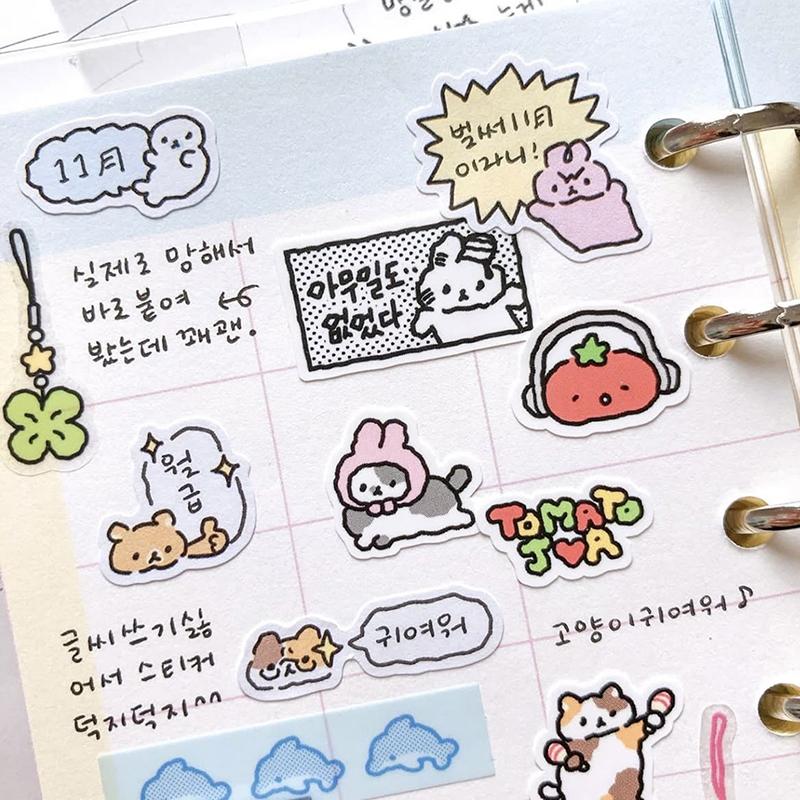 11月
벌써 11月
이라니!
실제로 망해서
바로 붙여
봤는데 꽤괜!
아무일도..
없었다
월
급
TOMATO
J♥A
글씨쓰기싫
어서 스티커
덕지덕지^^
귀여워
고양이귀여워♪